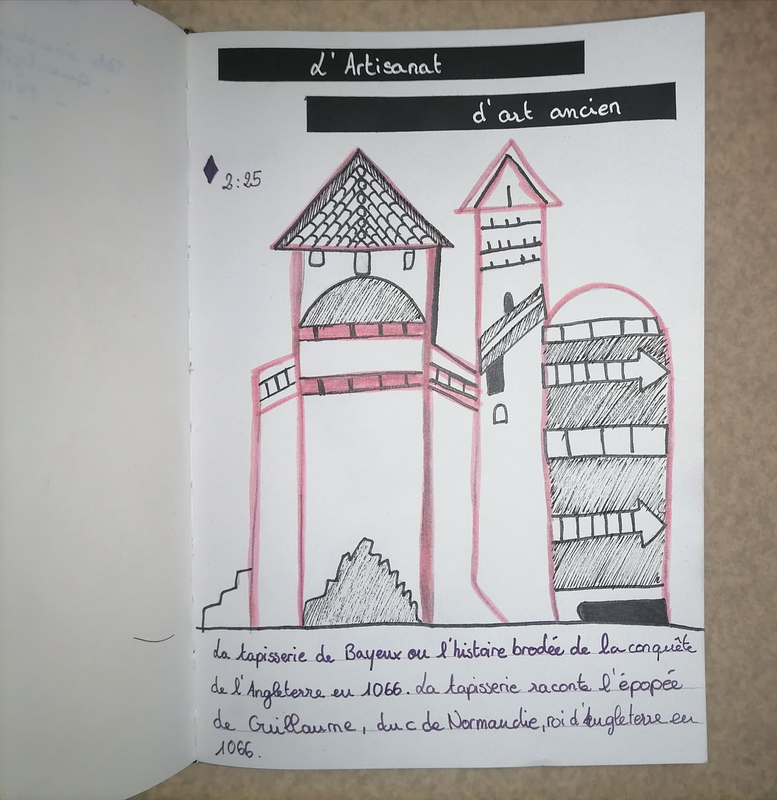 L'Artisanat
d'art ancien
2:25
La tapisserie de Bayeux ou l'histoire brodée de la conquête
de l'Angleterre en 1066. La tapisserie raconte l'épopée
de Guillaume, duc de Normandie, roi d'Angleterre en
1066.